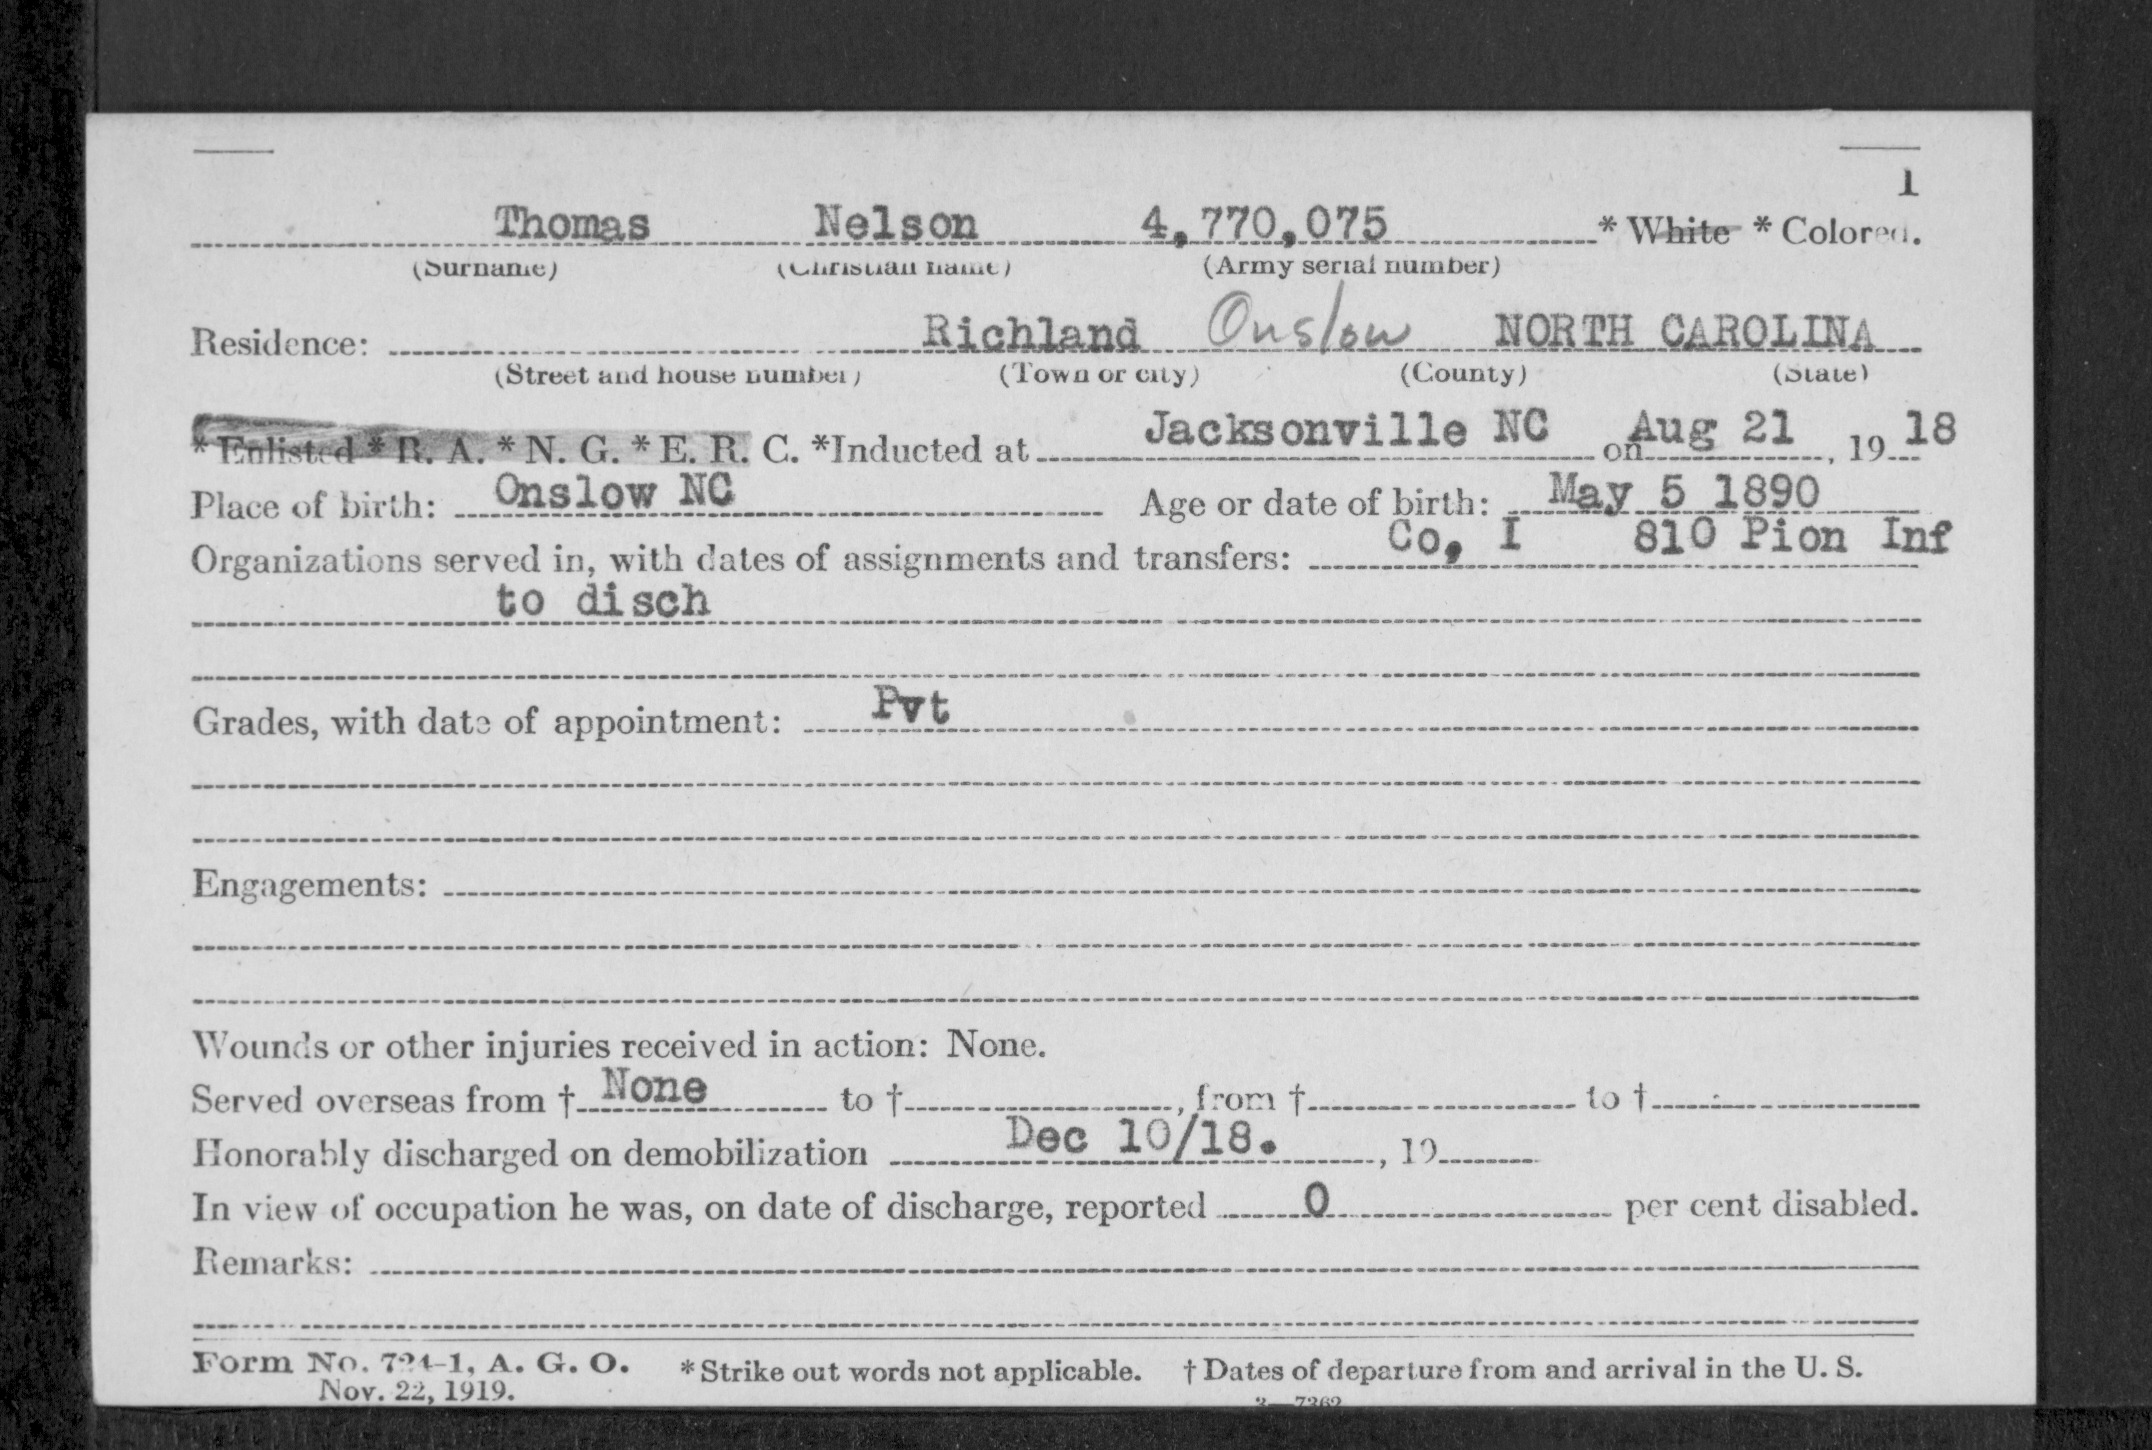 1
Thomas Nelson 4,770,075 * White * Colored.
(Surname) (Christian name) (Army serial number)
Residence: Richland Onslow NORTH CAROLINA
(Street and house number) (Town or city) (County) (State)
* Enlisted * R. A. * N. G. * E. R. C. *Inducted at Jacksonville NC on Aug 21, 1918
Place of birth: Onslow NC Age or date of birth: May 5 1890
Organizations served in, with dates of assignments and transfers: Co, I 810 Pion Inf
to disch
Grades, with date of appointment: Pvt
Engagements:
Wounds or other injuries received in action: None.
Served overseas from † None to †, from † to †
Honorably discharged on demobilization Dec 10/18. , 19
In view of occupation he was, on date of discharge, reported 0 per cent disabled.
Remarks:
Form No. 724-1, A. G. O. * Strike out words not applicable. † Dates of departure from and arrival in the U. S.
Nov. 22, 1919.
3—7362